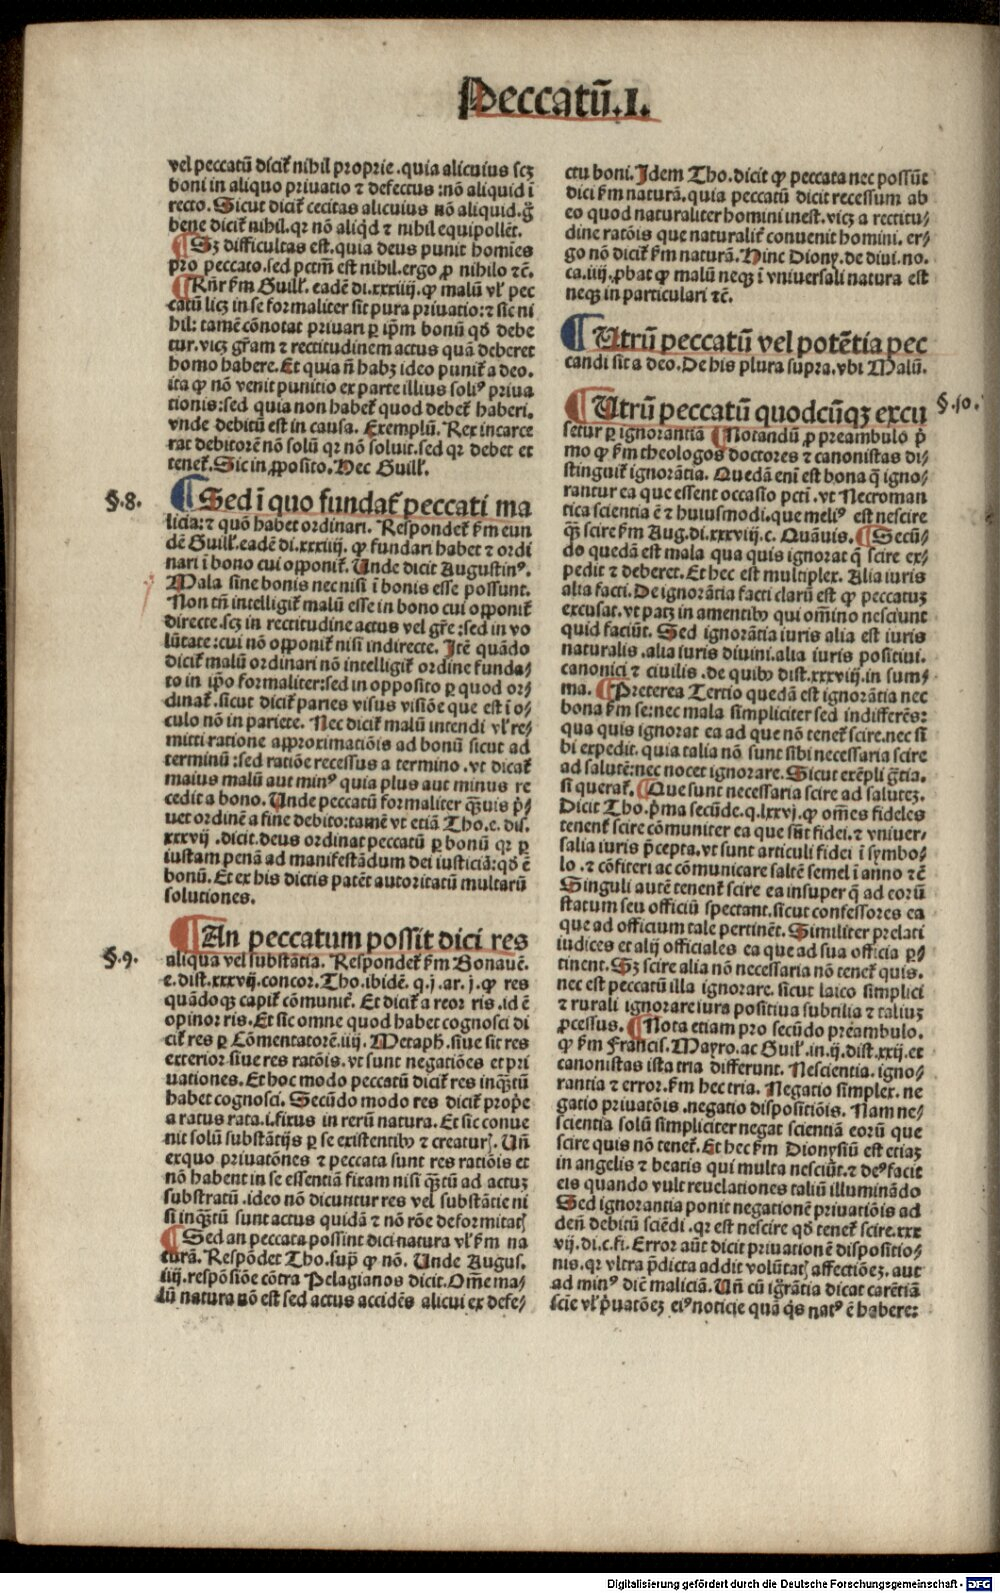 Peccatū.I.
vel peccatū dicit̃ nihil proprie.quia alicuius scꝫ
boni in aliquo priuatio ⁊ defectus :nō aliquid ī
recto.Sicut dicit̃ cecitas alicuius nō aliquid.g̃
bene dicit̃ nihil.qr nō aliq̇d ⁊ nihil equipollēt.
¶Sꝫ difficultas est.quia deus punit homīes
pro peccato.sed pctm̄ est nihil.ergo ꝓ nihilo ⁊c̄.
¶Rn̄r fm̄ Guill̓. eadē di.xxxiiij.ꝙ malū vl̓ pec
catū licꝫ in se formaliter sit pura priuatio:⁊ sic ni
hil: tamē cōnotat priuari ꝑ ip̄m bonū qd̓ debe
tur.vicꝫ gr̄am ⁊ rectitudinem actus quā deberet
homo habere.Et quia ñ habꝫ ideo punit̃ a deo.
ita ꝙ nō venit punitio ex parte illius soliꝰ priua
tionis:sed quia non habet̃ quod debet̃ haberi.
vnde debitū est in causa. Exemplū. Rex incarce
rat debitorē nō solū qr nō soluit.sed qr debet et
tenet̃.Sic in ꝓposito.Hec Guill̓.
§.8.
¶Sed ī quo fundat̃ peccati ma
licia:⁊ quō habet ordinari. Respondet̃ fm̄ eun
dē Guill̓.eadē di.xxxiiij. ꝙ fundari habet ⁊ ordi
nari ī bono cui opponit̃. Unde dicit Augustinꝰ.
Mala sine bonis nec nisi ī bonis esse possunt.
Non tn̄ intelligit̃ malū esse in bono cui opponit̃
directe.scꝫ in rectitudine actus vel gr̄e :sed in vo
lūtate:cui nō opponit̃ nisi indirecte. Itē quādo
dicit̃ malū ordinari nō intelligit̃ ordine funda⸗
to in ip̄o formaliter:sed in opposito ꝑ quod or⸗
dinat̃. sicut dicit̃ paries visus visiōe que est ī o⸗
culo nō in pariete. Nec dicit̃ malū intendi vl̓ re⸗
mitti ratione approximatiōis ad bonū sicut ad
terminū :sed ratiōe recessus a termino .vt dicat̃
maius malū aut minꝰ quia plus aut minus re
cedit a bono. Unde peccatū formaliter q̄uis p̄⸗
uet ordinē a fine debito:tamē vt etiā Tho.e. dis.
xxxvij .dicit.deus ordinat peccatū ꝑ bonū qr ꝑ
iustam penā ad manifestādum dei iusticiā:qd̓ ē
bonū. Et ex his dictis patēt autoritatū multarū
solutiones.
§.9.
¶An peccatum possit dici res
aliqua vel substātia. Respondet̃ fm̄ Bonauē.
e.dist.xxxvij.concor.Tho.ibidē. q.j.ar.j.ꝙ res
quādoqꝫ capit̃ cōmunit̃. Et dicit̃ a reor ris.id ē
opinor ris.Et sic omne quod habet cognosci di
cit̃ res ꝑ Cōmentatorē.iiij. Metaph̄.siue sit res
exterior siue res ratōis. vt sunt negatiōes et pri
uationes. Et hoc modo peccatū dicit̃ res inq̄tū
habet cognosci. Secūdo modo res dicit̃ prop̓e
a ratus rata.i.fixus in rerū natura. Et sic conue
nit solū substātijs ꝑ se existentibꝰ ⁊ creaturꝭ. Un̄
exquo priuatōnes ⁊ peccata sunt res ratiōis et
nō habent in se essentiā fixam nisi q̄tū ad actuꝫ
substratū .ideo nō dicuntur res vel substātie ni
si inq̄tū sunt actus quidā ⁊ nō rōe deformitatꝭ
¶Sed an peccata possint dici natura vl̓ fm̄ na
turā. Respōdet Tho.sup̄ ꝙ nō. Unde Augus.
iiij.respōsiōe cōtra Pelagianos dicit.Om̄e ma⸗
lū natura nō est sed actus accidēs alicui ex defe⸗
ctu boni. Idem Tho.dicit ꝙ peccata nec possūt
dici fm̄ naturā.quia peccatū dicit recessum ab
eo quod naturaliter homini inest.vicꝫ a rectitu⸗
dine ratōis que naturalit̃ conuenit homini. er⸗
go nō dicit̃ fm̄ naturā. Hinc Diony.de diui.no.
ca.iiij.ꝓbat ꝙ malū neqꝫ ī vniuersali natura est
neqꝫ in particulari ⁊c̄.
¶Utrū peccatū vel potētia pec
candi sit a deo.De his plura supra.vbi Malū.
§.10.
¶Utrū peccatū quodcūqꝫ excu
setur ꝑ ignorantiā ¶Notandū ꝓ preambulo p̓
mo ꝙ fm̄ theologos doctores ⁊ canonistas di⸗
stinguit̃ ignorātia. Quedā eni est bona q̄ igno⸗
rantur ea que essent occasio pcti .vt Necroman
tica scientia ē ⁊ huiusmodi.que meliꝰ est nescire
q̄ scire fm̄ Aug.di.xxxviij.c. Quāuis. ¶Secū⸗
do quedā est mala qua quis ignorat q̄ scire ex⸗
pedit ⁊ deberet.Et hec est multiplex. Alia iuris
alia facti. De ignorātia facti clarū est ꝙ peccatuꝫ
excusat.vt patꝫ in amentibꝰ qui om̄ino nesciunt
quid faciūt. Sed ignorātia iuris alia est iuris
naturalis .alia iuris diuini.alia iuris positiui.
canonici ⁊ ciuilis .de quibꝰ dist.xxxviij.in sum⸗
ma. ¶Preterea Tertio quedā est ignorātia nec
bona fm̄ se:nec mala simpliciter sed indifferēs:
qua quis ignorat ea ad que nō tenet̃ scire.nec si
bi expedit.quia talia nō sunt sibi necessaria scire
ad salutē:nec nocet ignorare. Sicut exēpli gr̄tia.
si querat̃. ¶Que sunt necessaria scire ad saluteꝫ.
Dicit Tho.p̓ma secūde.q.lxxvj.ꝙ om̄es fideles
tenent̃ scire cōmuniter ea que sūt fidei.⁊ vniuer⸗
salia iuris p̄cepta.vt sunt articuli fidei ī symbo⸗
lo .⁊ cōfiteri ac cōmunicare saltē semel ī anno ⁊c̄
Singuli autē tenent̃ scire ea insuper q̄ ad eorū
statum seu officiū spectant.sicut confessores ea
que ad officium tale pertinēt. Similiter prelati
iudices et alij officiales ea que ad sua officia ꝑ⸗
tinent. Sꝫ scire alia nō necessaria nō tenet̃ quis.
nec est peccatū illa ignorare. sicut laico simplici
⁊ rurali ignorare iura positiua subtilia ⁊ taliuꝫ
ꝓcessus. ¶Nota etiam pro secūdo preambulo.
ꝙ fm̄ Francis. Mayro.ac Guil̓.in.ij.dist.xxij.et
canonistas ista tria differunt. Nescientia. igno⸗
rantia ⁊ error.fm̄ hec tria. Negatio simplex. ne
gatio priuatōis .negatio dispositiōis. Nam ne⸗
scientia solū simpliciter negat scientiā eorū que
scire quis nō tenet̃. Et hec fm̄ Dionysiū est etiaꝫ
in angelis ⁊ beatis qui multa nesciūt.⁊ deꝰ facit
eis quando vult reuelationes taliū illuminādo
Sed ignorantia ponit negationē priuatiōis ad
den̄ debitū sciēdi .qr est nescire qd̓ tenet̃ scire.xxx
vij.di.c.fi. Error aūt dicit priuationē dispositio⸗
nis.qr vltra p̄dicta addit volūtatꝭ affectiōeꝫ. aut
ad minꝰ diē maliciā. Un̄ cū igr̄ātia dicat carētiā
sciē vl̓ p̓uatōeꝫ eiꝰ noticie quā q̓s natꝰ ē habere:
Digitalisierung gefördert durch die Deutsche Forschungsgemeinschaft - DFG